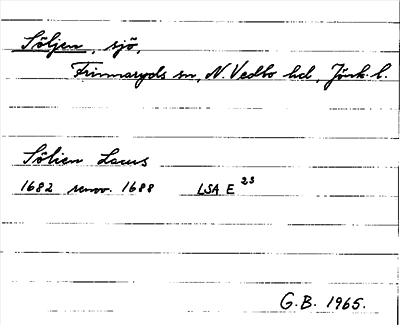 Söljen, sjö,
Frinnaryds sn, N. Vedbo hd, Jönk. l.
Sölien Lacus
1682 renov. 1688 LSA E 23
G.B. 1965.